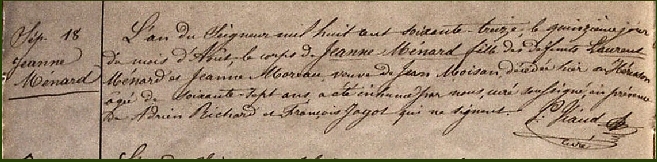 Sép. 18
Jeanne
Ménard
L'an du Seigneur mil huit cent soixante-treize, le quinzième jour
du mois d'Août, le corps de Jeanne Ménard fille des defunts Laurent
Ménard et Jeanne Moreau, veuve de Jean Moison, décédée hier au
agé de soixante-sept ans a été inhumé par nous, curé soussigné, en présence
De Adrien Richard et François Jagot qui ne signent.
Curé